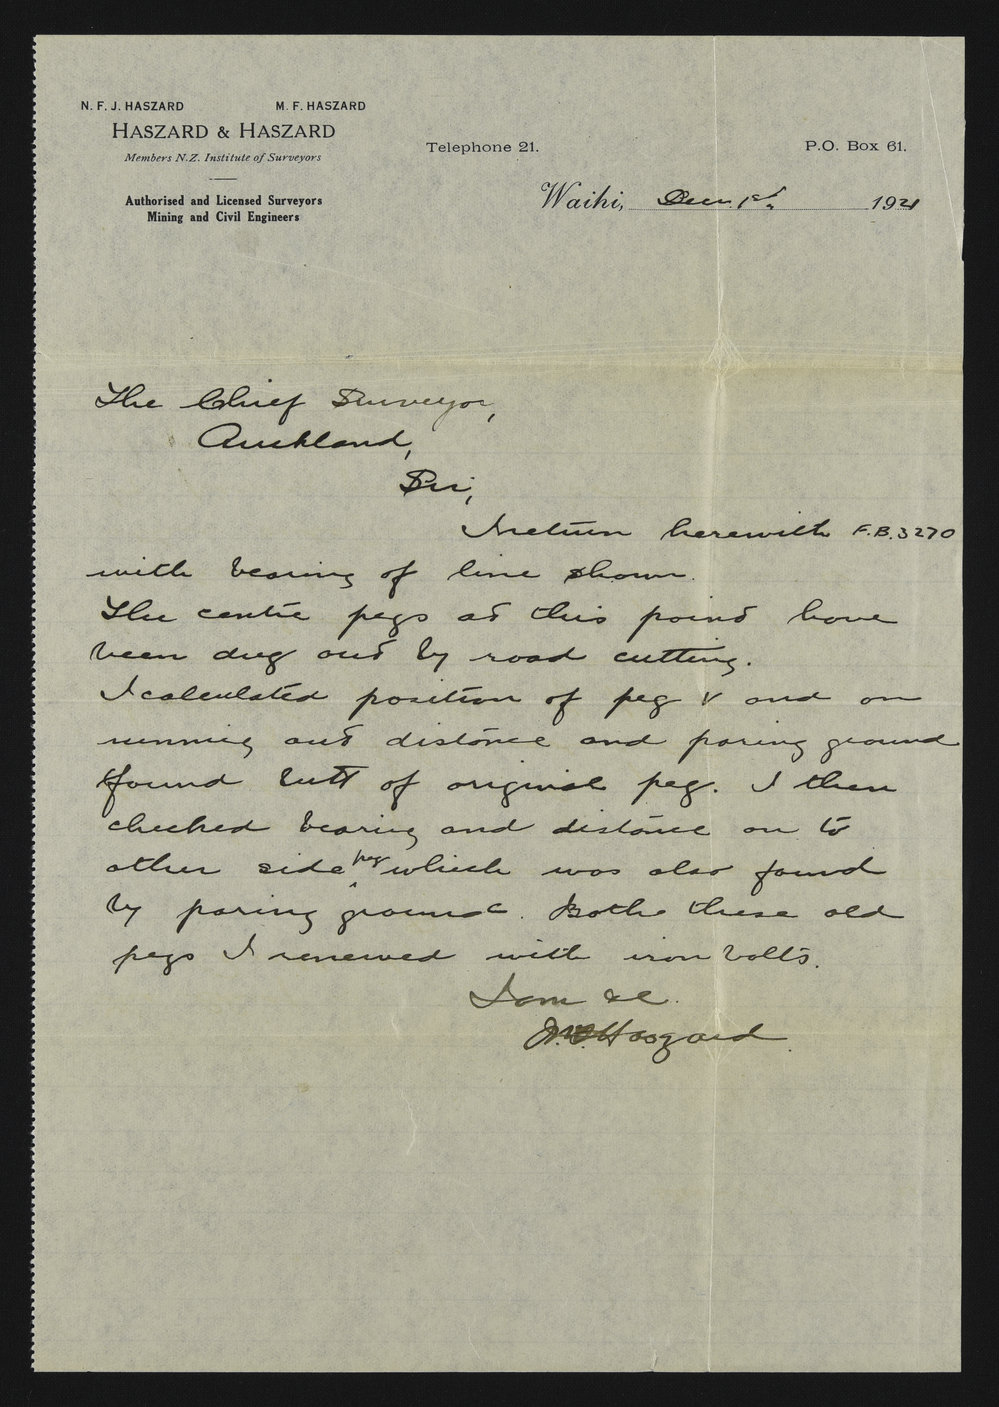 N. F. J. HASZARD M. F. HASZARD
HASZARD & HASZARD
Members N.Z. Institute of Surveyors
Authorised and Licensed Surveyors
Mining and Civil Engineers
Telephone 21.
P.O. Box 61.
Waihi, Decr. 1st, 1921
The Chief Surveyor,
Auckland,
Sir,
I return herewith F.B. 3270
with bearing of line shown.
The centre pegs at this point have
been dug out by road cutting.
I calculated position of peg V and on
running out distance and paring ground
found butt of original peg. I then
checked bearing and distance on to
other side peg which was also found
by paring ground. Both these old
pegs I renewed with iron bolts.
I am &c.
Haszard.